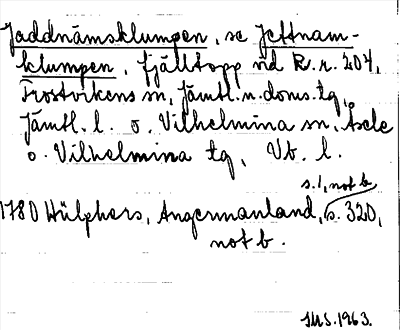 Jaddnämsklumpen, se Jettnam-
klumpen, fjälltopp vid R.r. 204,
Frostvikens sn, Jämtl. n. doms. tg,
Jämtl. l. o. Vilhelmina sn, Åsele
o. Vilhelmina tg, Vb. l.
s. 1, not b
1780 Hülphers, Ångermanland, s. 320,
not b.
1963.